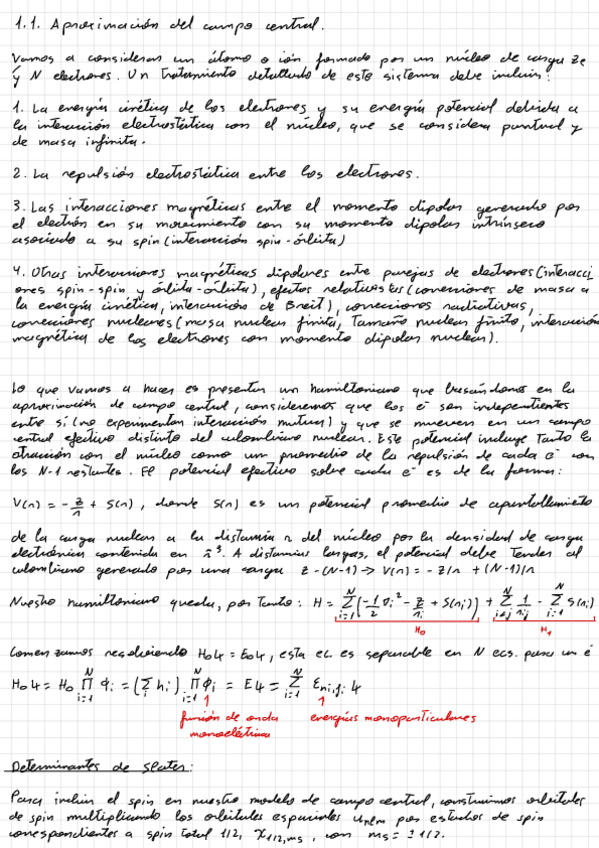 1.1. Aproximación del campo central.
Vamos a considerar un átomo o ión formado por un núcleo de carga Ze
y N electrones. Un tratamiento detallado de este sistema debe incluir:
1. La energía cinética de los electrones y su energía potencial debida a
la interacción electrostática con el núcleo, que se considera puntual y
de masa infinita.
2. La repulsión electrostática entre los electrones.
3. Las interacciones magnéticas entre el momento dipolar generado por
el electrón en su movimiento con su momento dipolar intrínseco
asociado a su spin (interacción spin-órbita)
4. Otras interacciones magnéticas dipolares entre parejas de electrones (interacci
ones spin-spin y órbita-órbita), efectos relativistas (correcciones de masa a
la energía cinética, interacción de Breit), correcciones radiativas,
correcciones nucleares (masa nuclear finita, tamaño nuclear finito, interacción
magnética de los electrones con momento dipolar nuclear).
Lo que vamos a hacer es presentar un hamiltoniano que basándonos en la
aproximación de campo central, consideremos que los e⁻ son independientes
entre sí (no experimentan interacción mutua) y que se mueven en un campo
central efectivo distinto del culombiano nuclear. Este potencial incluye tanto la
atracción con el núcleo como un promedio de la repulsión de cada e⁻ con
los N-1 restantes. El potencial efectivo sobre cada e⁻ es de la forma:
V(r) = -Z/r + S(r), donde S(r) es un potencial promedio de apantallamiento
de la carga nuclear a la distancia r del núcleo por la densidad de carga
electrónica contenida en r³. A distancias largas, el potencial debe tender al
culombiano generado por una carga Z-(N-1) → V(r) = -Z/r + (N-1)/r
Nuestro hamiltoniano queda, por tanto: H = Σᵢ₌₁ᴺ(-1/2 ∇ᵢ² - Z/rᵢ + S(rᵢ)) + Σᵢ<ⱼᴺ 1/rᵢⱼ - Σᵢ₌₁ᴺ S(rᵢ)
H₀ H₁
Comenzamos resolviendo H₀ψ = E₀ψ, esta ec. es separable en N ecs. para un e⁻
H₀ψ = H₀ Πᵢ₌₁ᴺ ϕᵢ = (Σᵢ hᵢ) Πᵢ₌₁ᴺ ϕᵢ = Eψ = Σᵢ₌₁ᴺ Ɛnᵢ,lᵢ ψ
función de onda energías monoparticulares
monoelectrónica
Determinantes de Slater:
Para incluir el spin en nuestro modelo de campo central, construimos orbitales
de spin multiplicando los orbitales espaciales Uₙₗₘ por estados de spin
correspondientes a spin total 1/2, χ1/2,ms, con ms = ±1/2.